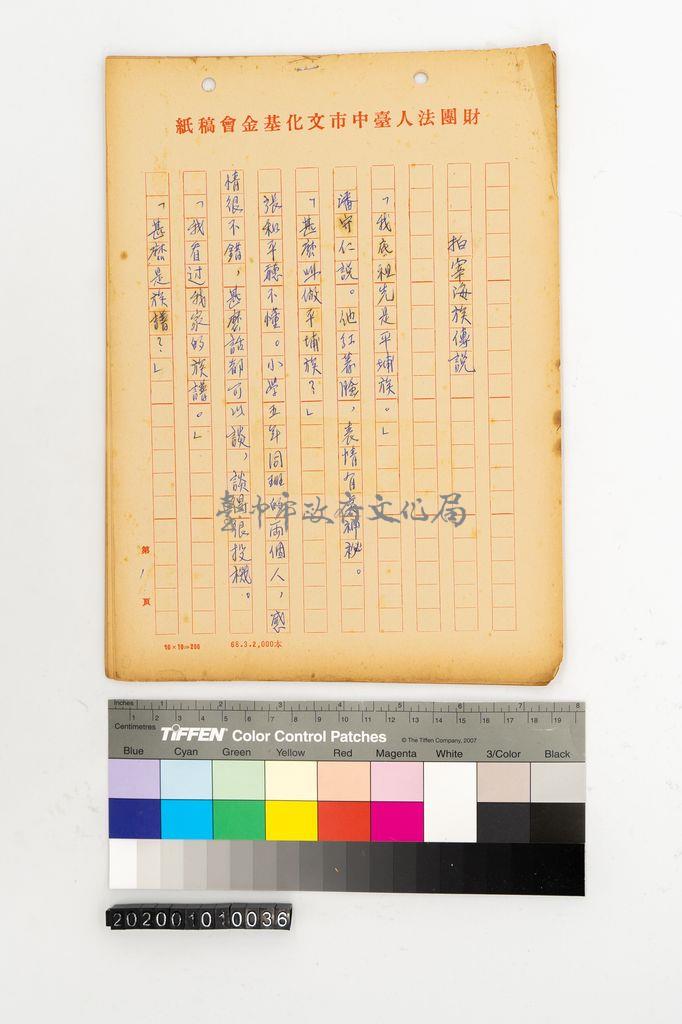 財團法人臺中市文化基金會稿紙
拍宰海族傳說
「我底祖先是平埔族。」
潘守仁說。他紅著臉，表情有些神秘。
「甚麼叫做平埔族？」
張和平聽不懂。小學五年同班的兩個人，感
情很不錯，甚麼話都可以談，談得很投機。
「我看过我家的族譜。」
「甚麼是族譜？」
第1頁
10×10=200
68.3.2,000本
臺中市政府文化局
Inches 1 2 3 4 5 6 7 8
Centimetres 1 2 3 4 5 6 7 8 9 10 11 12 13 14 15 16 17 18 19
TIFFEN Color Control Patches © The Tiffen Company, 2007
Blue Cyan Green Yellow Red Magenta White 3/Color Black
202001010036